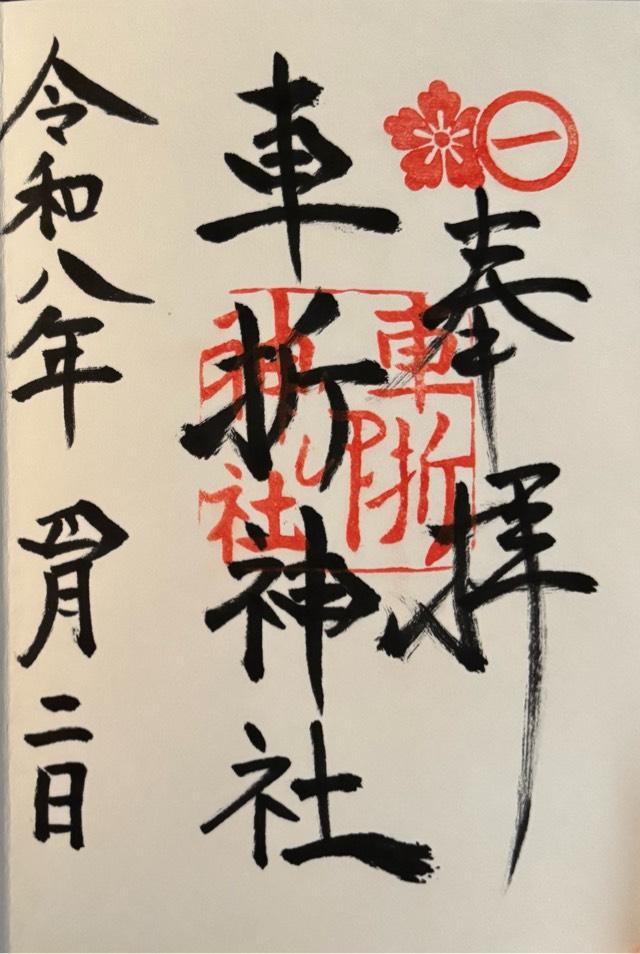 一
奉拝
車折神社
車折
神社
印
令和八年 四月二日